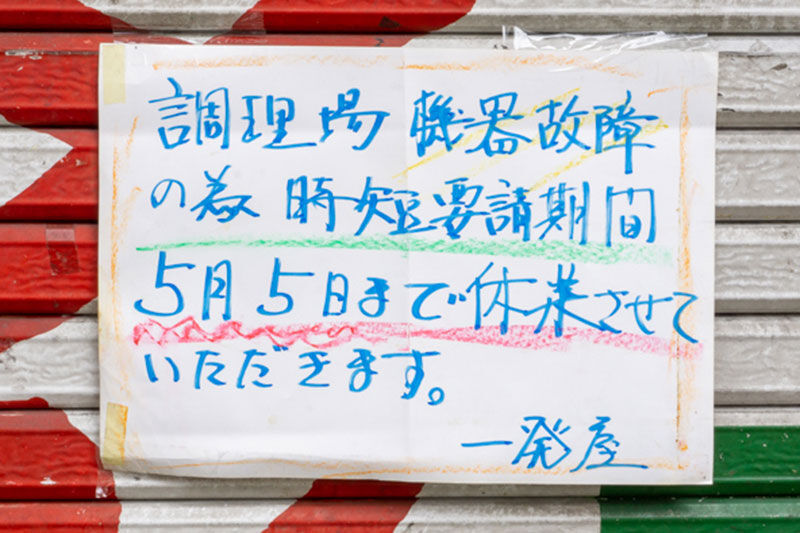 調理場 機器故障
の為 時短要請期間
5月5日まで休業させて
いただきます。
一発屋